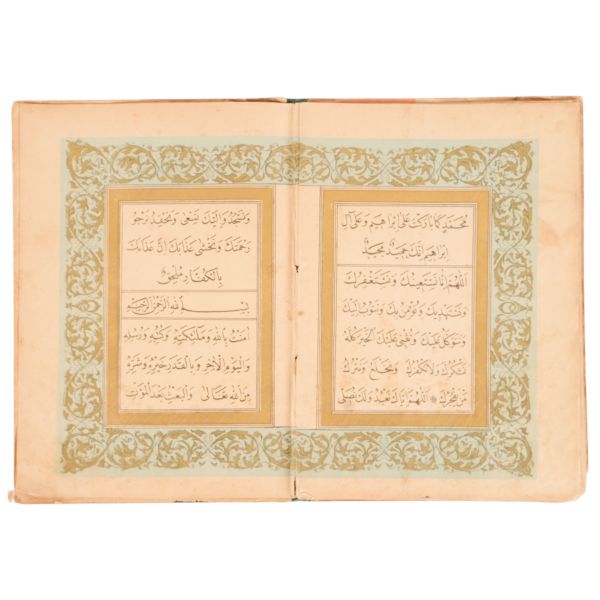 مُحَمَّدٍ كَمَا بَارَكْتَ عَلَى اِبْرَاهِيمَ وَعَلَى آلِ
اِبْرَاهِيمَ اِنَّكَ حَمِيدٌ مَجِيدٌ
اَللّٰهُمَّ اِنَّا نَسْتَعِينُكَ وَنَسْتَغْفِرُكَ
وَنَسْتَهْدِيكَ وَنُؤْمِنُ بِكَ وَنَتُوبُ اِلَيْكَ
وَنَتَوَكَّلُ عَلَيْكَ وَنُثْنِى عَلَيْكَ الْخَيْرَ كُلَّهُ
نَشْكُرُكَ وَلَا نَكْفُرُكَ وَنَخْلَعُ وَنَتْرُكُ
مَنْ يَفْجُرُكَ اَللّٰهُمَّ اِيَّاكَ نَعْبُدُ وَلَكَ نُصَلِّى
وَنَسْجُدُ وَاِلَيْكَ نَسْعٰى وَنَحْفِدُ نَرْجُو
رَحْمَتَكَ وَنَخْشٰى عَذَابَكَ اِنَّ عَذَابَكَ
بِالْكُفَّارِ مُلْحِقٌ
بِسْمِ اللهِ الرَّحْمٰنِ الرَّحِيمِ
اٰمَنْتُ بِاللهِ وَمَلٰئِكَتِهِ وَكُتُبِهِ وَرُسُلِهِ
وَالْيَوْمِ الْاٰخِرِ وَبِالْقَدَرِ خَيْرِهِ وَشَرِّهِ
مِنَ اللهِ تَعَالٰى وَالْبَعْثُ بَعْدَ الْمَوْتِ